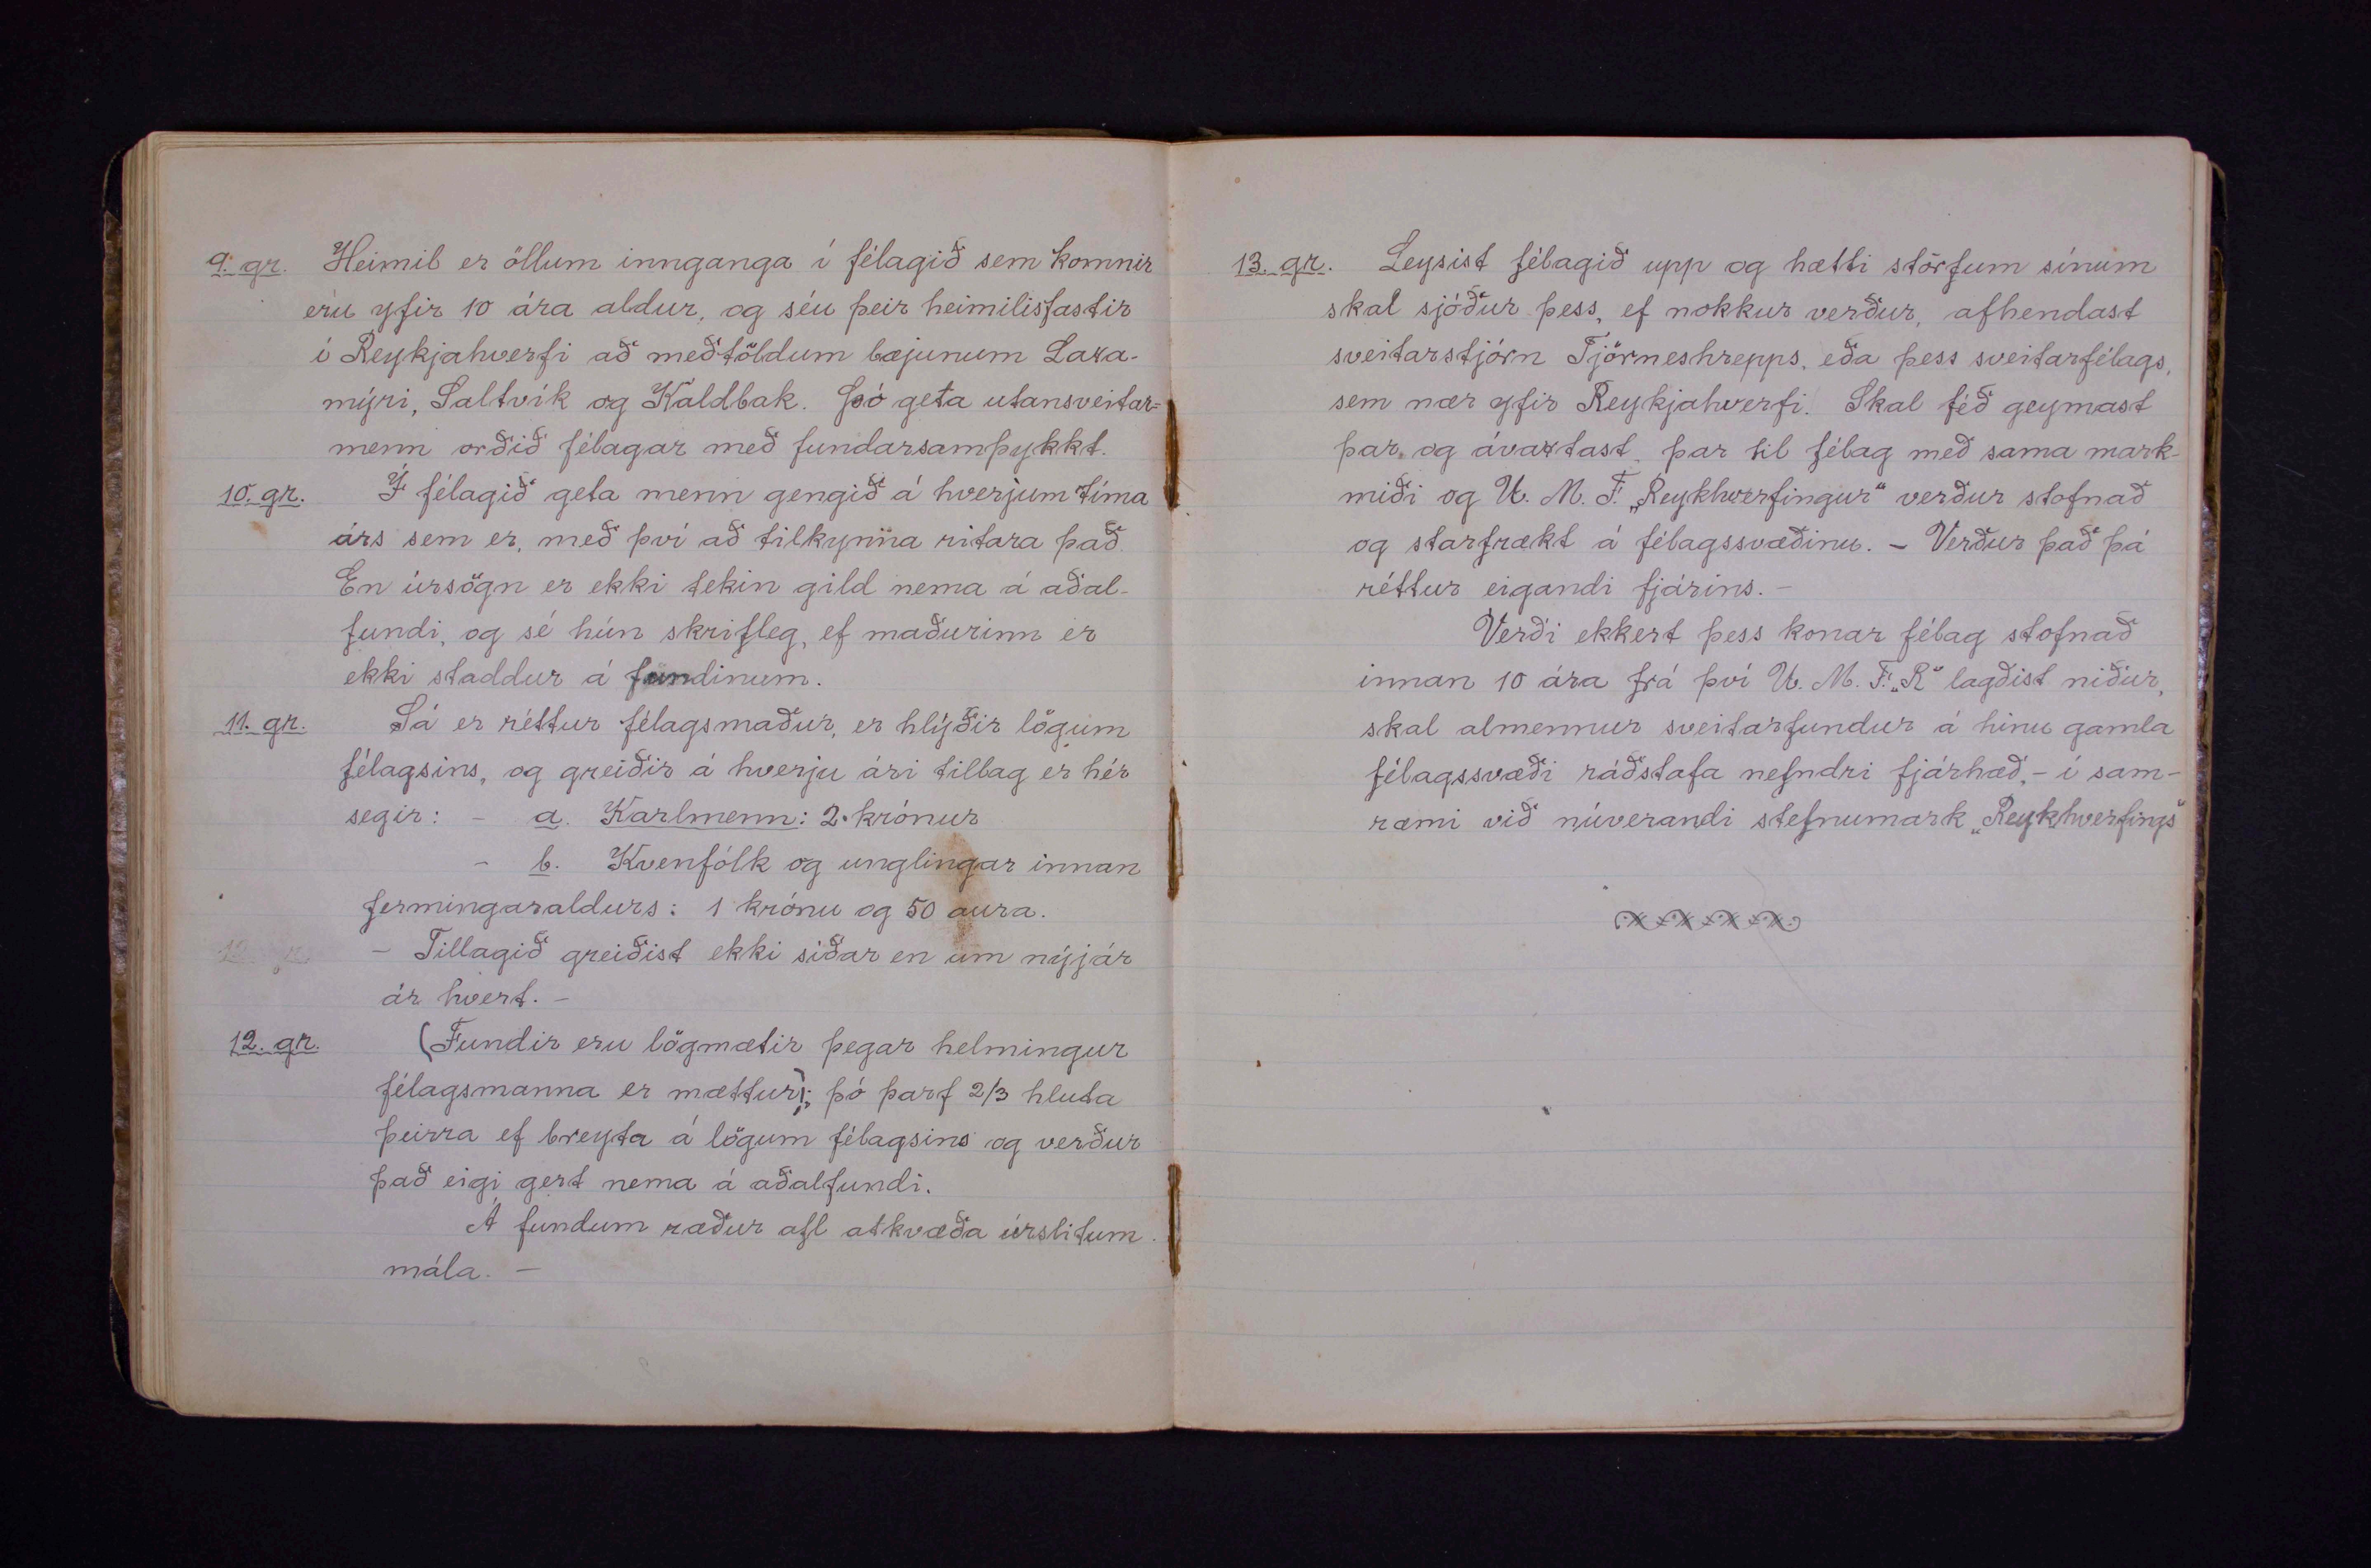 9. gr. Heimil er öllum innganga í félagið sem komnir
eru yfir 10 ára aldur, og séu þeir heimilisfastir
í Reykjahverfi að meðtöldum bæjunum Laxa-
mýri, Saltvík og Kaldbak. Þó geta utansveitar-
menn orðið félagar með fundarsamþykkt.
10. gr. Í félagið geta menn gengið á hverjum tíma
árs sem er, með því að tilkynna ritara það.
En úrsögn er ekki tekin gild nema á aðal-
fundi, og sé hún skrifleg, ef maðurinn er
ekki staddur á fundinum.
11. gr. Sá er réttur félagsmaður, er hlýðir lögum
félagsins, og greiðir á hverju ári tillag er hér
segir: - a. Karlmenn: 2 krónur
- b. Kvenfólk og unglingar innan
fermingaraldurs: 1 krónu og 50 aura.
12. gr. - Tillagið greiðist ekki síðar en um nýjár
ár hvert. -
12. gr. (Fundir eru lögmætir þegar helmingur
félagsmanna er mættur); þó þarf 2/3 hluta
þeirra ef breyta á lögum félagsins og verður
það eigi gert nema á aðalfundi.
Á fundum ræður afl atkvæða úrslitum
mála. -
13. gr. Leysist félagið upp og hætti störfum sínum
skal sjóður þess, ef nokkur verður, afhendast
sveitarstjórn Tjörneshrepps, eða þess sveitarfélags,
sem nær yfir Reykjahverfi. Skal féð geymast
þar og ávaxtast þar til félag með sama mark-
miði og U. M. F. „Reykhverfingur" verður stofnað
og starfrækt á félagssvæðinu. - Verður það þá
réttur eigandi fjárins. -
Verði ekkert þess konar félag stofnað
innan 10 ára frá því U. M. F. „R" lagðist niður,
skal almennur sveitarfundur á hinu gamla
félagssvæði ráðstafa nefndri fjárhæð, - í sam-
ræmi við núverandi stefnumark „Reykhverfings"